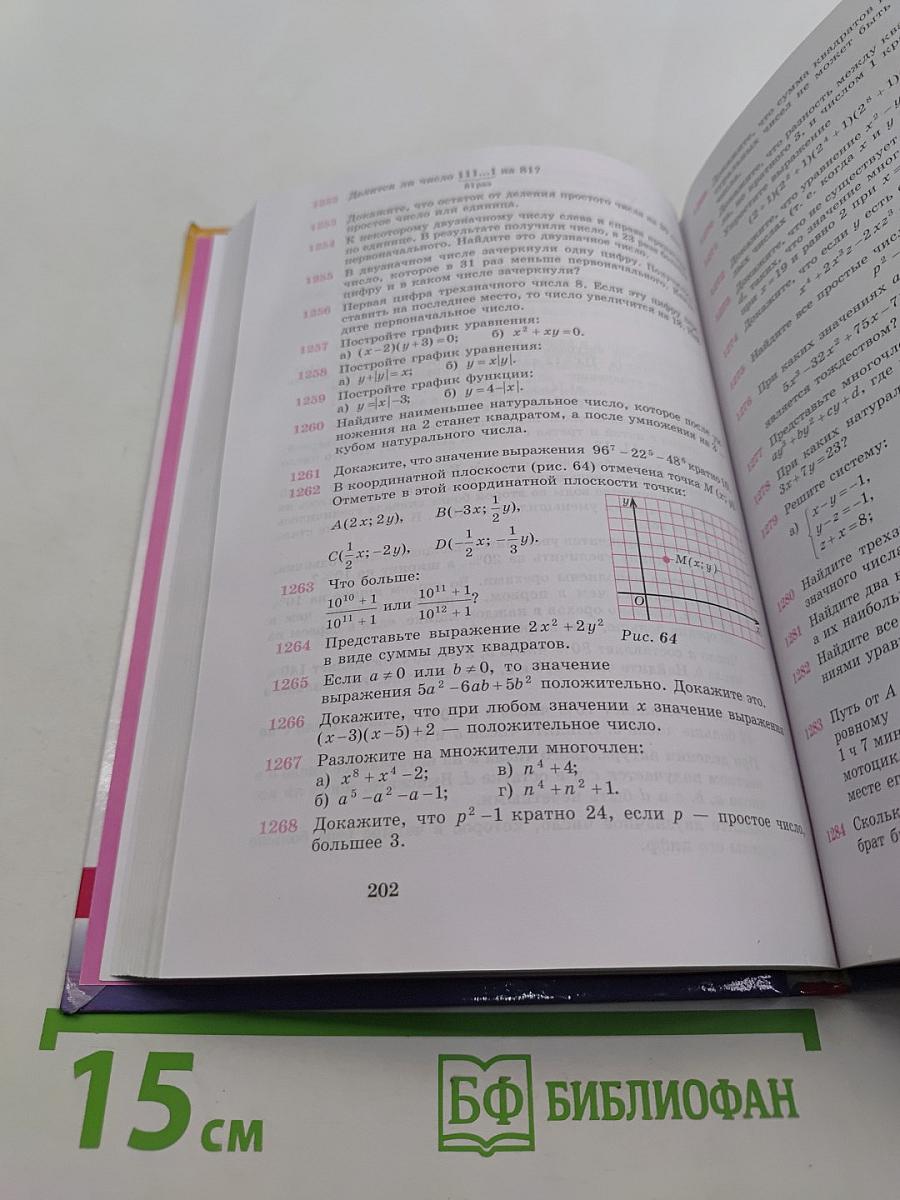 1252 Делится ли число 111...1 на 81?
81 раз
1253 Докажите, что остаток от деления простого числа на 30 —
простое число или единица.
1254 К некоторому двузначному числу слева и справа
по единице. В результате получили число, в 23 раза
первоначального. Найдите это двузначное число.
1255 В двузначном числе зачеркнули одну цифру.
число, которое в 31 раз меньше первоначального.
цифру и в каком числе зачеркнули?
1256 Первая цифра трехзначного числа 8. Если эту цифру
ставить на последнее место, то число увеличится на 18.
дите первоначальное число.
1257 Постройте график уравнения:
а) (x−2)(y+3)=0; б) x²+xy=0.
1258 Постройте график уравнения:
а) y+|y|=x; б) y=x|y|.
1259 Постройте график функции:
а) y=|x|−3; б) y=4−|x|.
1260 Найдите наименьшее натуральное число, которое после
ножения на 2 станет квадратом, а после умножения на
кубом натурального числа.
1261 Докажите, что значение выражения 96⁷−22⁵−48⁶ кратно 10.
1262 В координатной плоскости (рис. 64) отмечена точка M(x; y).
Отметьте в этой координатной плоскости точки:
A(2x; 2y), B(−3x; 1/2 y),
C(1/2 x; −2y), D(−1/2 x; −1/3 y).
y
M(x; y)
O
x
Рис. 64
1263 Что больше:
(10¹⁰+1)/(10¹¹+1) или (10¹¹+1)/(10¹²+1)?
1264 Представьте выражение 2x²+2y²
в виде суммы двух квадратов.
1265 Если a≠0 или b≠0, то значение
выражения 5a²−6ab+5b² положительно. Докажите это.
1266 Докажите, что при любом значении x значение выражения
(x−3)(x−5)+2 — положительное число.
1267 Разложите на множители многочлен:
а) x⁸+x⁴−2; в) n⁴+4;
б) a⁵−a²−a−1; г) n⁴+n²+1.
1268 Докажите, что p²−1 кратно 24, если p — простое число,
большее 3.
202
Докажите, что сумма квадратов
не может быть
что разность между
кратного 3, и числом 1
выражение
(2+1)(2²+1)(2⁴+1)(2⁸+1)
что уравнение x²−y
числах (т. е. когда x и y
что не существует
таких, что значение
при x=19 и равно 2 при x=
Докажите, что если y есть
x⁴+2x²z−2xz³
1274 Найдите все простые
p²−
1275 При каких значениях a
5x⁴−32x³+75x−7
является тождеством?
1277 Представьте многочле
ay³+by²+cy+d, где
1278 При каких натурал
3x+7y=23?
1279 Решите систему:
а) x−y=−1,
y−z=−1,
z+x=8;
1280 Найдите трехз
значного числа
1281 Найдите два
а их наиболь
1282 Найдите все
ниями урав
1283 Путь от A
ровному
1 ч 7 мин
мотоцик
месте ег
1284 Сколь
брат б
15 см
БФ БИБЛИОФАН